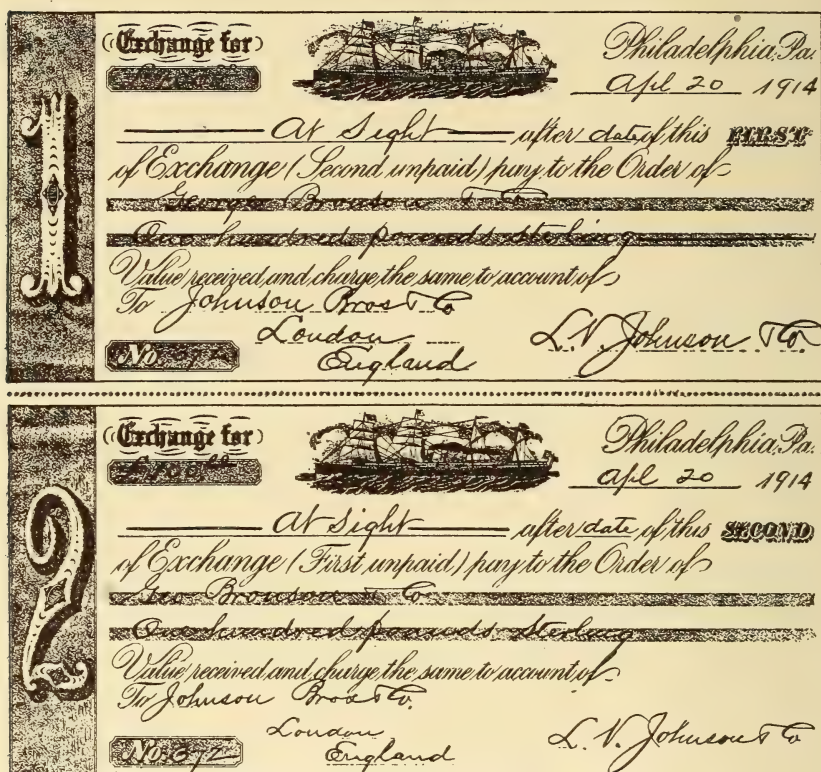 1
Exchange for
Philadelphia, Pa.
Apl 20 1914
At Sight after date of this FIRST
of Exchange (Second unpaid) pay to the Order of
George Bronson & Co
One hundred pounds sterling
Value received and charge the same to account of
To Johnson Bros & Co
London
England
L. V. Johnson & Co.
No 372
2
Exchange for
£100.00
Philadelphia, Pa.
Apl 20 1914
At Sight after date of this SECOND
of Exchange (First unpaid) pay to the Order of
Geo Bronson & Co
One hundred pounds Sterling
Value received and charge the same to account of
To Johnson Bros & Co.
London
England
L. V. Johnson & Co
No. 372